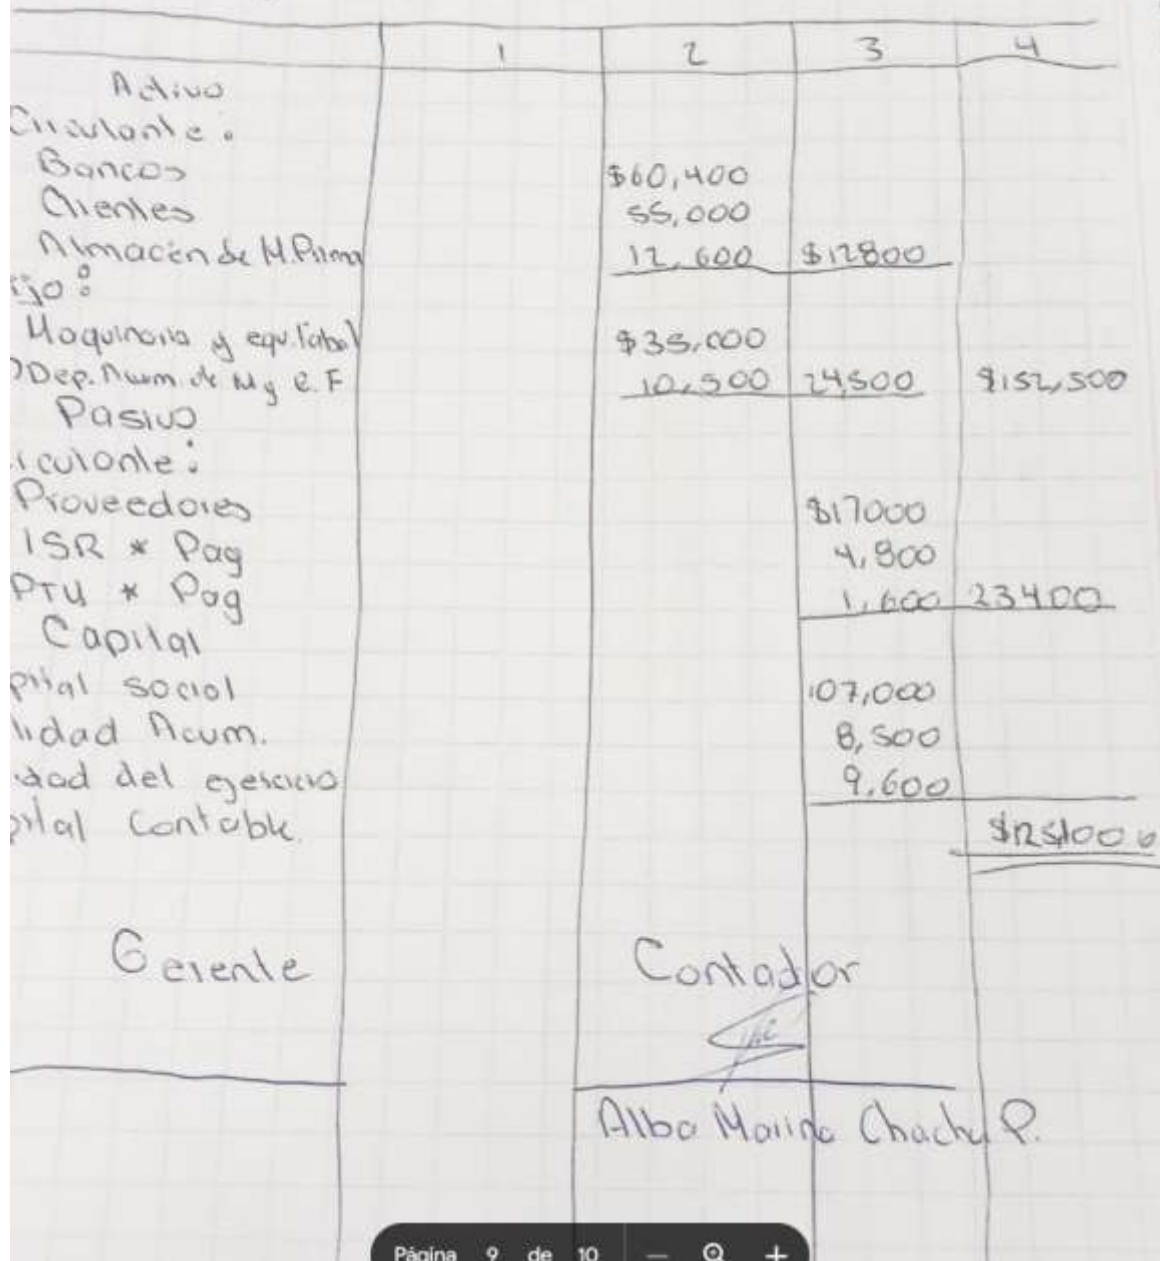 1 2 3 4
Activo
Circulante:
Bancos $60,400
Clientes 55,000
Almacén de M. Prima 12,600 $12800
ijo:
Maquinaria y equ. fabol $35,000
Dep. Acum de M y e. F 10,500 24,500 $152,500
Pasivo
iculante:
Proveedores $17000
ISR * Pag 4,800
PTU * Pag 1,600 23400
Capital
pital social 107,000
lidad Acum. 8,500
idad del ejercicio 9,600
pital Contable. $125,100
Gerente Contador
Alba Marina P.
Página 9 de 10